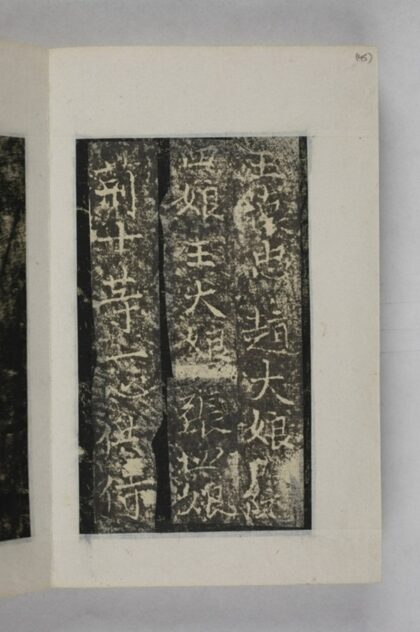 (45)
王 忠趙大娘
四娘王大娘張 娘
荊十等一心供侍